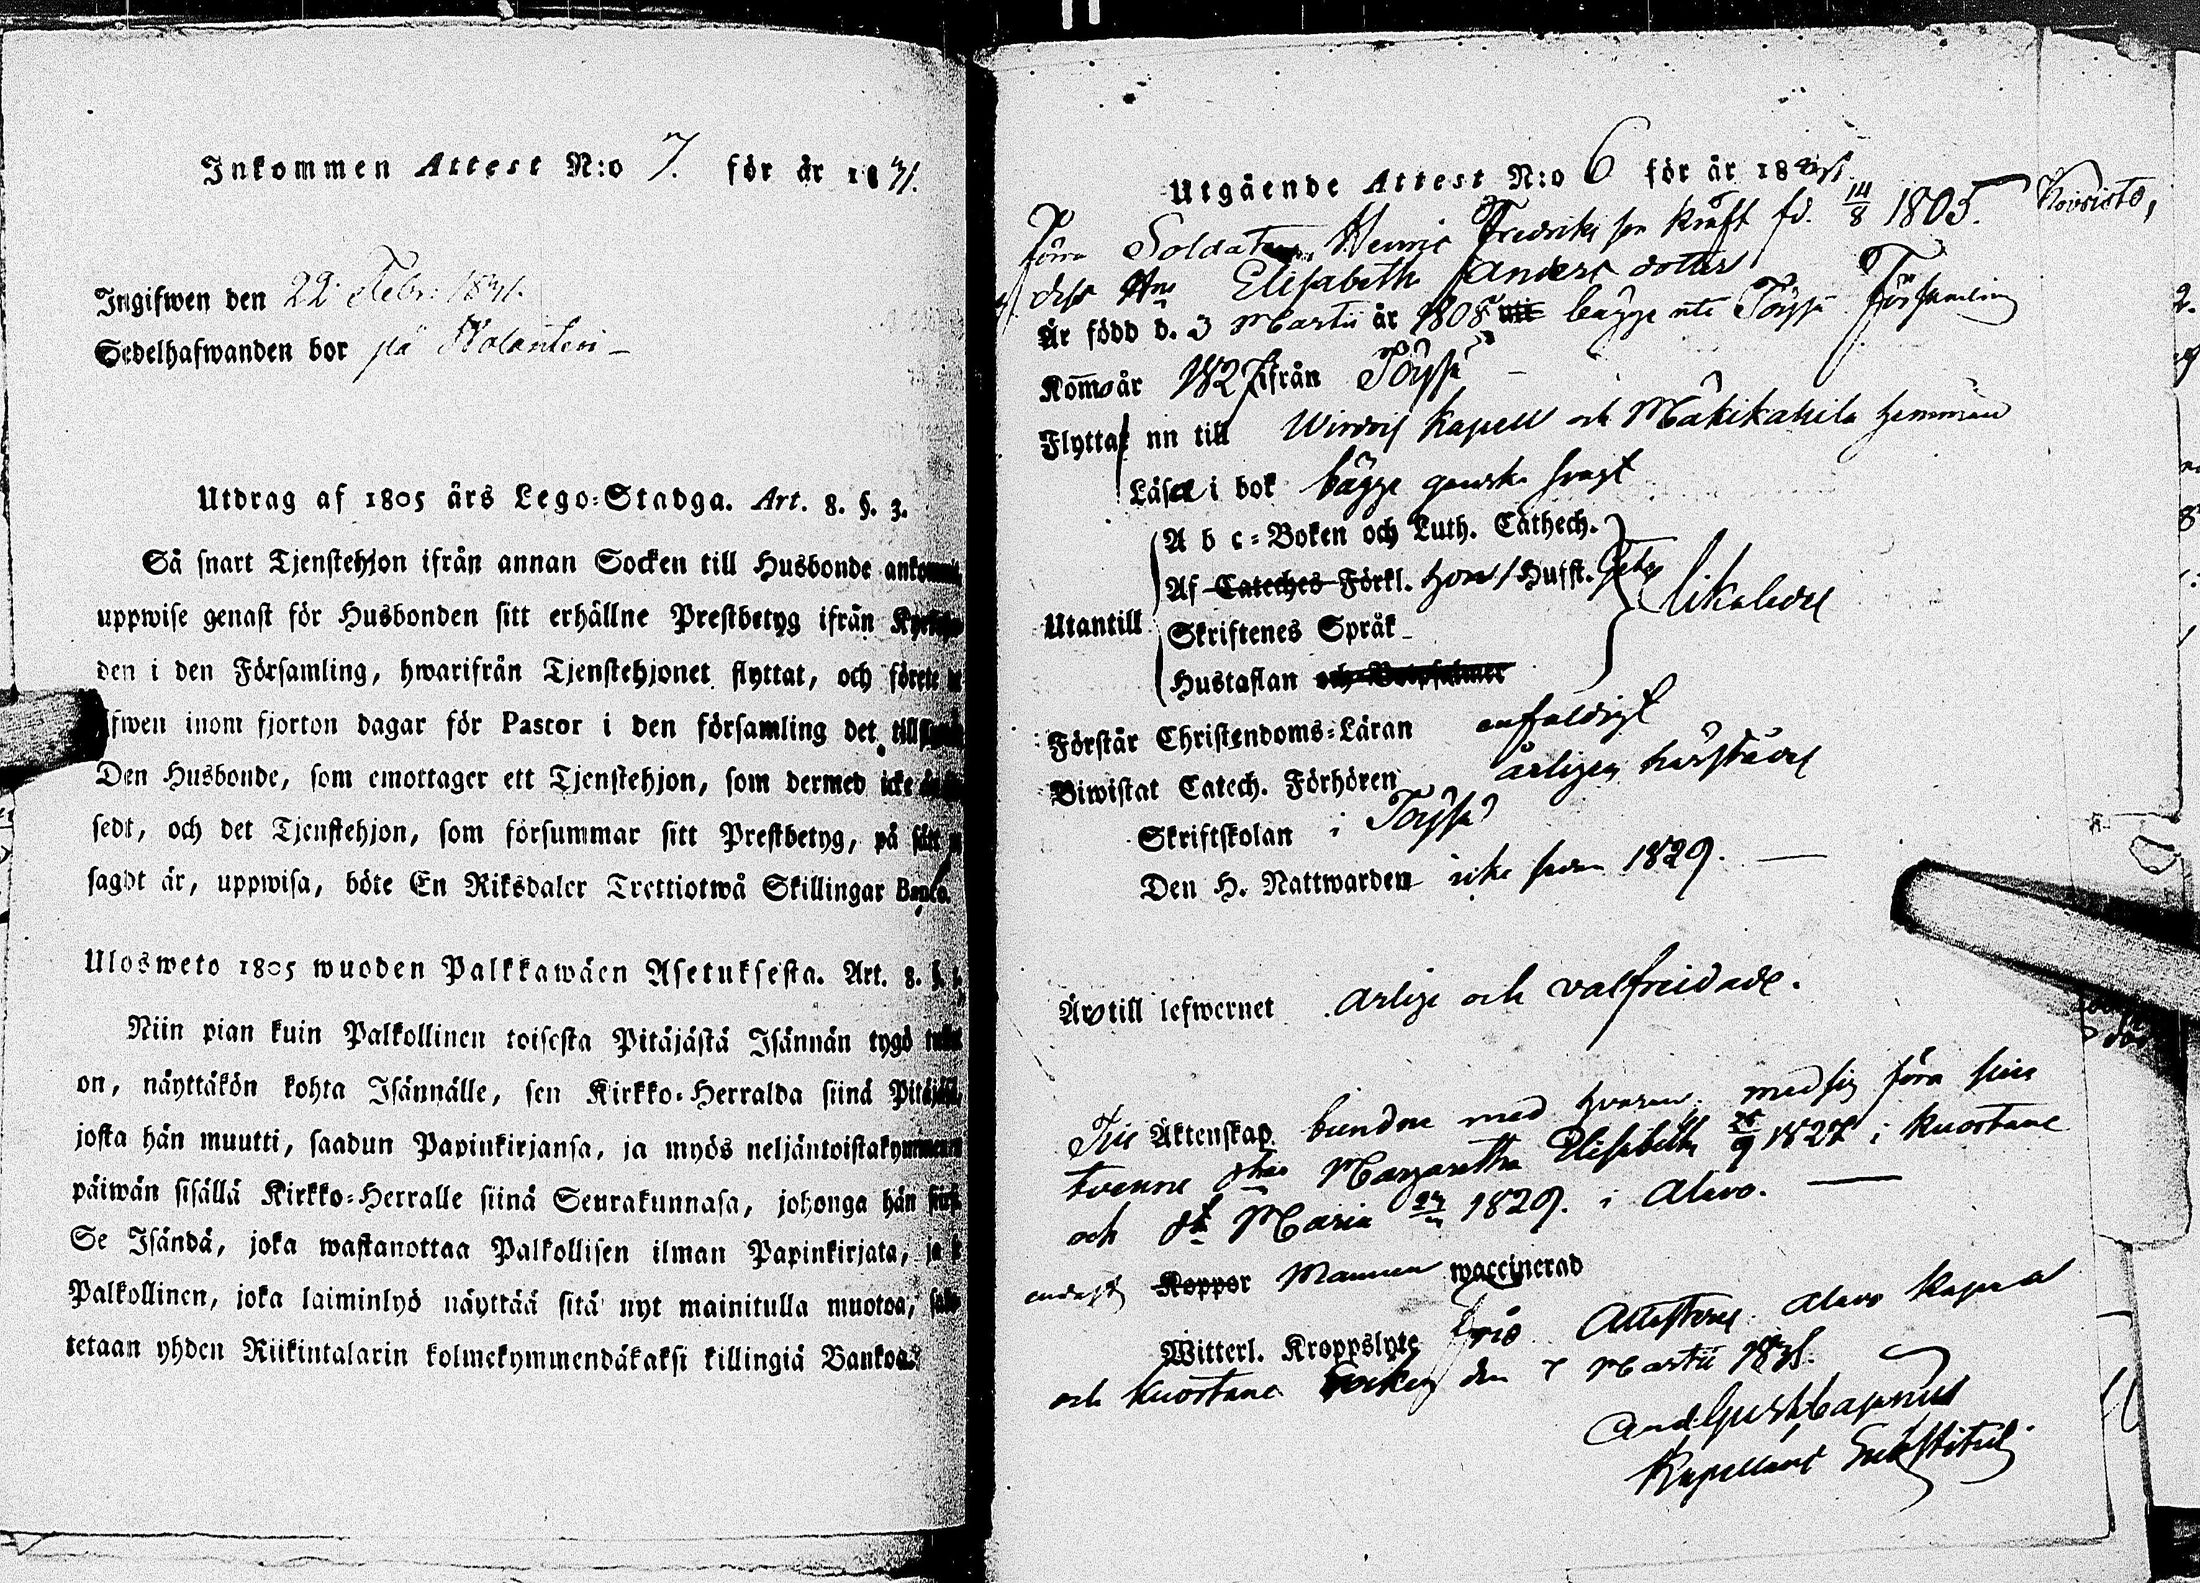 Inkommen Attest N:o 7. för år 1831.
Ingifwen den 22 Febr: 1831.
Sedelhafwanden bor på
Utdrag af 1805 års Lego-Stadga. Art. 8. §. 3.
Så snart Tjenstehjon ifrån annan Socken till Husbonde
uppwise genast för Husbonden sitt erhållne Prestbetyg ifrån
den i den Församling, hwarifrån Tjenstehjonet flyttat, och förete
ifwen inom fjorton dagar för Pastor i den församling det
Den Husbonde, som emottager ett Tjenstehjon, som dermed icke
sedt, och det Tjenstehjon, som försummar sitt Prestbetyg, på sätt
sagdt är, uppwisa, böte En Riksdaler Trettiotwå Skillingar Banco.
Ulosweto 1805 wuoden Palkkawäen Asetuksesta. Art. 8. §.
Niin pian kuin Palkollinen toisesta Pitäjästä Isännän tygö
on, näyttäkön kohta Isännälle, sen Kirkko-Herralda siinä
josta hän muutti, saadun Papinkirjansa, ja myös neljäntoistakymmenen
päiwän sisällä Kirkko-Herralle siinä Seurakunnasa, johonga hän
Se Isändä, joka wastanottaa Palkollisen ilman Papinkirjata, ja
Palkollinen, joka laiminlyö näyttää sitä nyt mainitulla muotoa,
tetaan yhden Riikintalarin kolmekymmendäkaksi killingiä Bankoa.
Utgående Attest N:o 6 för år 1831.
Förra Soldaten Henric Fredriks son Kraft fd. 14/8 1805.
dess Hu Elisabeth Anders dotter
Är född d. 3 Martii år 1808 bägge uti Töysä Församling
Kom̄o år 1827 ifrån Töysä
Flyttat nn till Wirdois Kapell och Mäkikahila hemman
Läsa i bok bägge ganska svagt
A b c-Boken och Luth. Cathech.
Af Cateches Förkl. hon / Husst.
likaledes
Utantill
Skriftenes Språk
Hustaflan och Botpsalmer
Förstår Christendoms-Läran enfaldigt
Biwistat Catech. Förhören årligen härstädes
Skriftskolan i Töysä
Den H. Nattwarden icke sedan 1829.
Äro till lefwernet ärlige och välfreidade.
Äktenskap bundne med hvaran, med sig föra sina
tvenne Margaretha Elisabeth 1827 i Kuortane
och Maria 1829. i Alavo.
endast Koppor Mannen waccinerad
Witterl. Kroppslyte Attesterar Alavo Kapell
och Kuortane Socken den 7 Martii 1831.
Kapellans Substitut